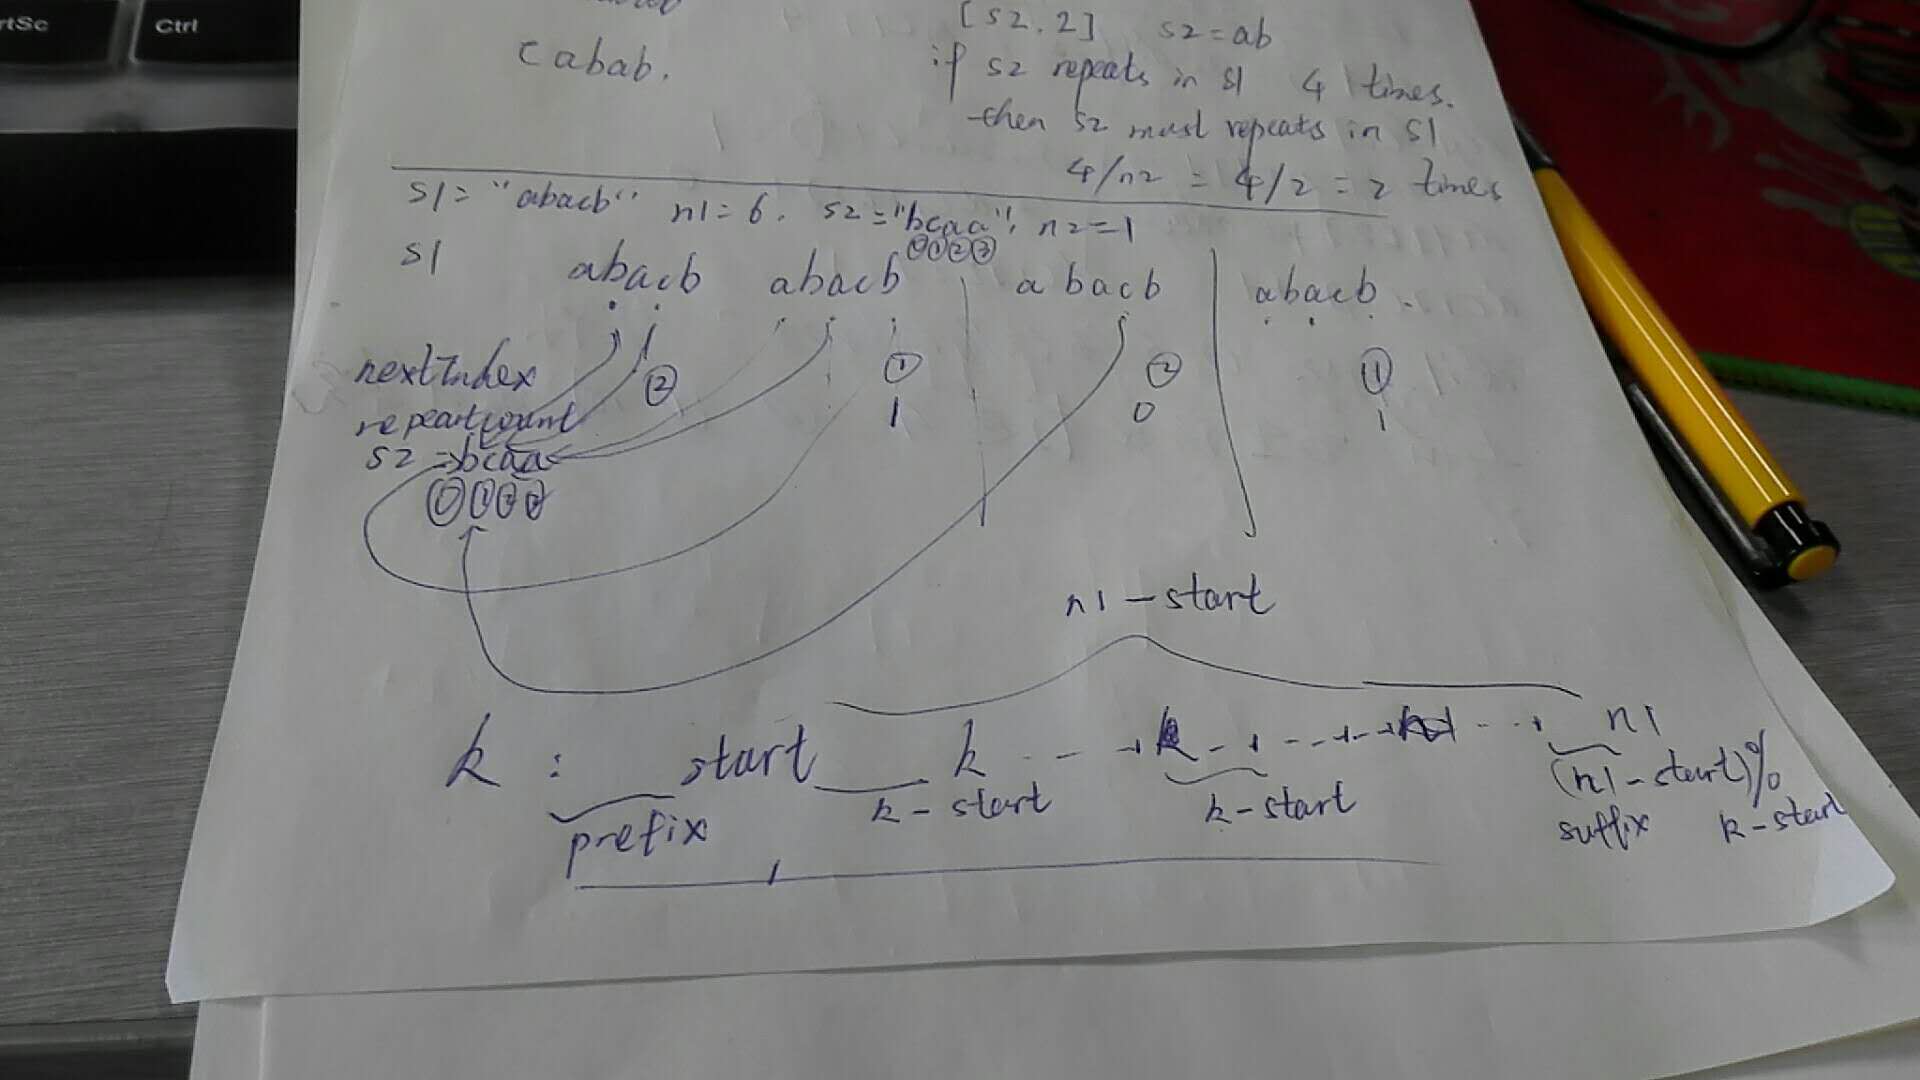 rtSc Ctrl
[s2, 2] s2=ab
cabab.
if s2 repeats in s1 4 times.
then s2 must repeats in s1
4/n2 = 4/2 = 2 times
s1= "abacb" n1=6. s2="bcaa", n2=1
⓪①②③
s1 abacb abacb abacb abacb.
nextIndex ② ① ② ①
repeartcount 1 0 1
s2 =bcaa
⓪①②③
n1-start
k : start k k n1
prefix k-start k-start (n1-start)%
suffix k-start